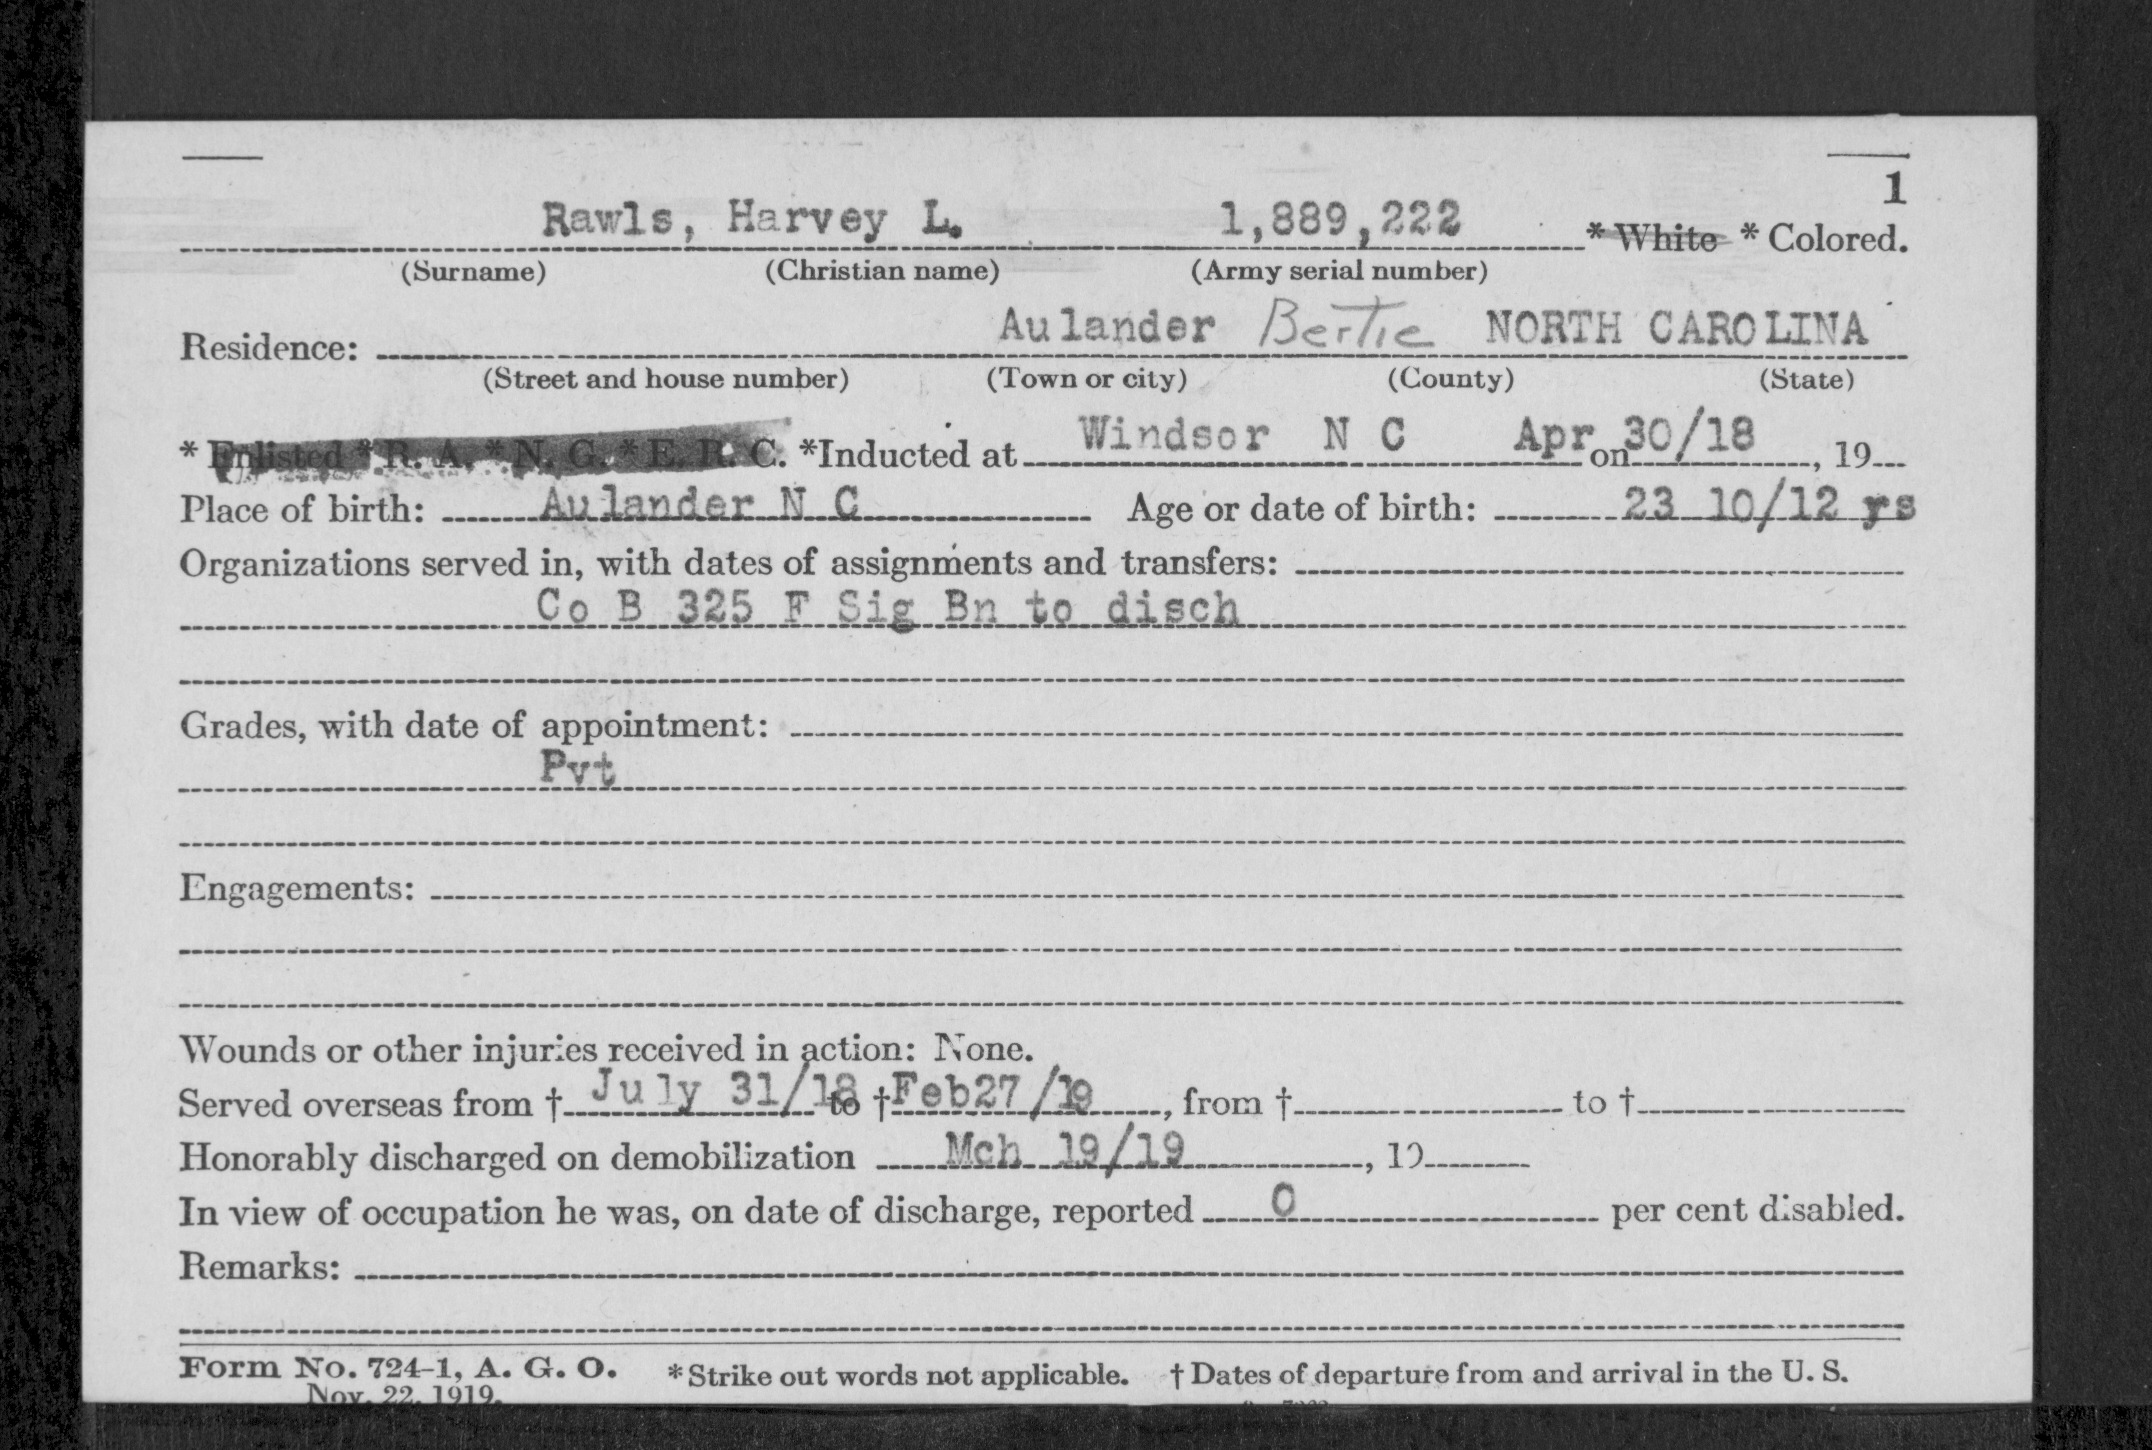 1
Rawls, Harvey L. 1,889,222 * White * Colored.
(Surname) (Christian name) (Army serial number)
Residence: Aulander Bertie NORTH CAROLINA
(Street and house number) (Town or city) (County) (State)
* Enlisted * R. A. * N. G. * E. R. C. *Inducted at Windsor N C Apr on 30/18, 19
Place of birth: Aulander N C Age or date of birth: 23 10/12 yrs
Organizations served in, with dates of assignments and transfers:
Co B 325 F Sig Bn to disch
Grades, with date of appointment:
Pvt
Engagements:
Wounds or other injuries received in action: None.
Served overseas from † July 31/18 to † Feb27/19, from † to †
Honorably discharged on demobilization Mch 19/19, 19
In view of occupation he was, on date of discharge, reported 0 per cent disabled.
Remarks:
Form No. 724-1, A. G. O. * Strike out words not applicable. † Dates of departure from and arrival in the U. S.
Nov. 22, 1919.